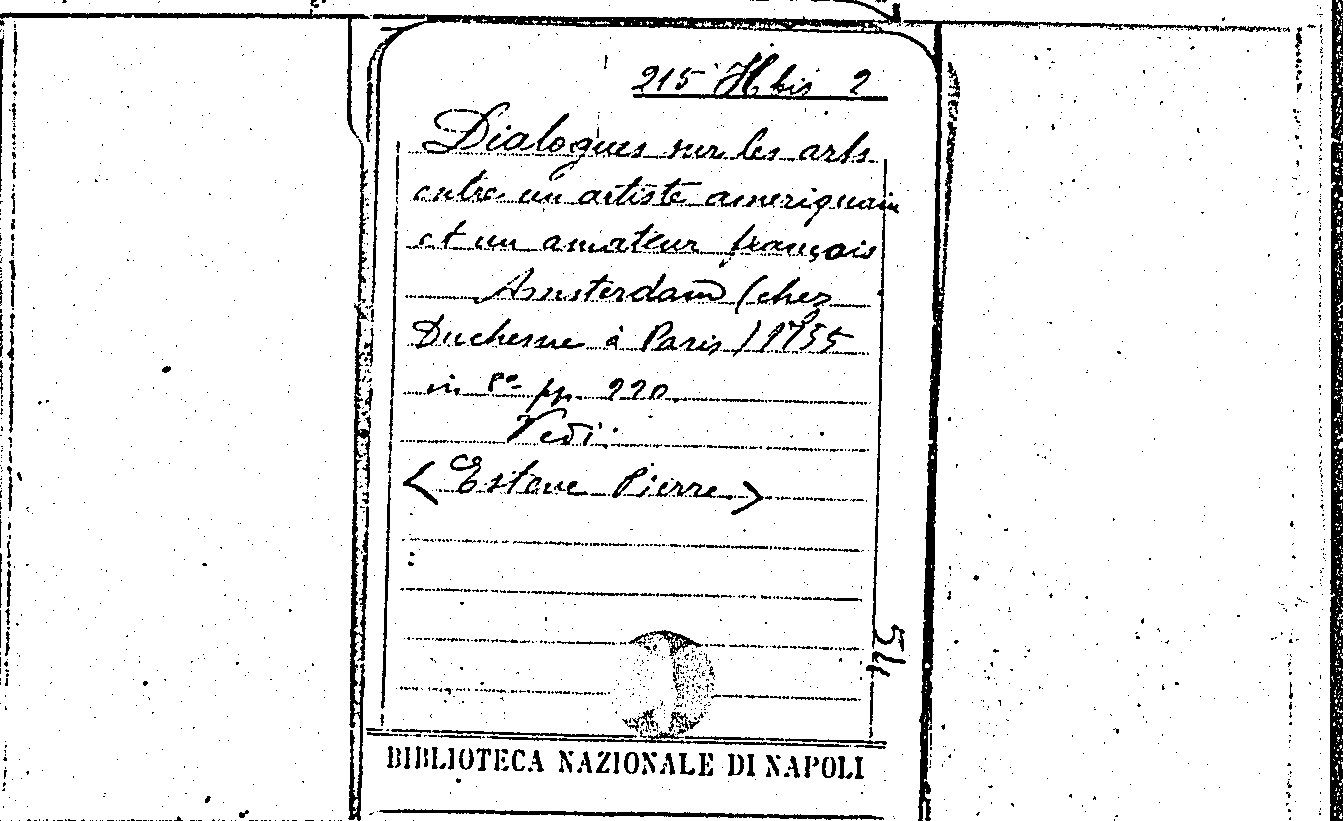 215 H bis 2
Dialogues sur les arts
entre un artiste ameriquain
et un amateur françois
Amsterdam (chez
Duchesne à Paris) 1755
in 8º pp. 220.
Vedi:
<Esteve Pierre>
54
BIBLIOTECA NAZIONALE DI NAPOLI